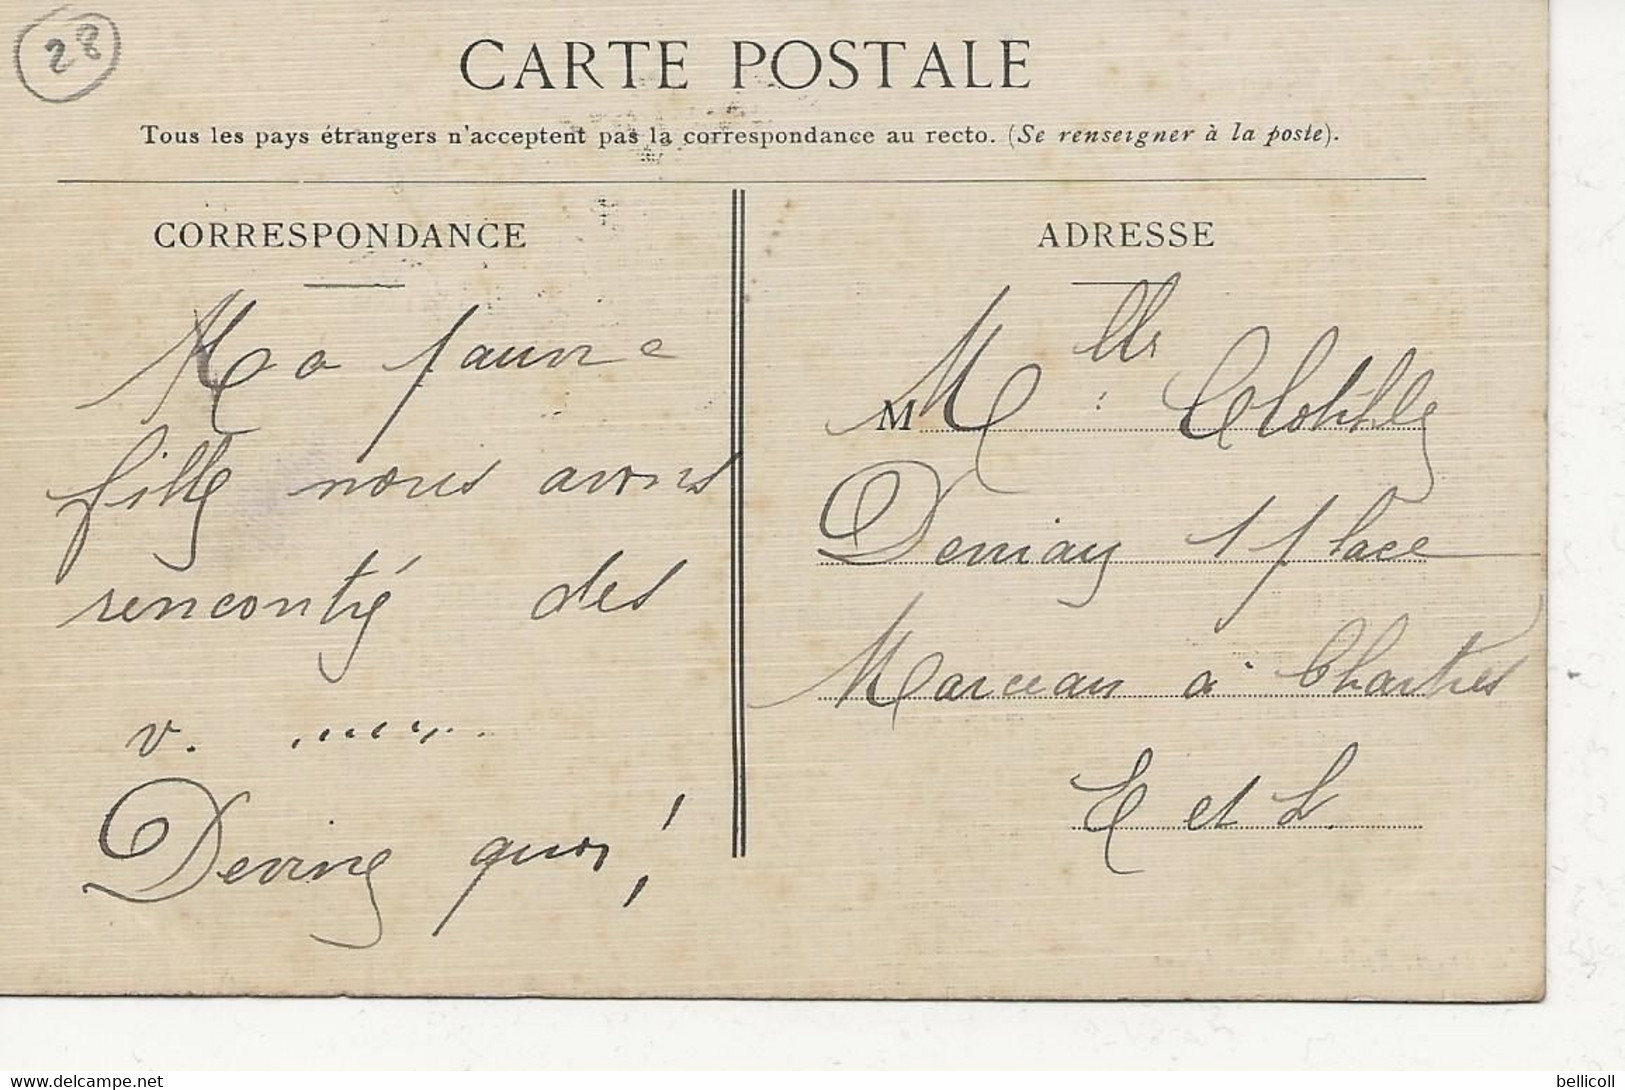 28
CARTE POSTALE
Tous les pays étrangers n'acceptent pas la correspondance au recto. (Se renseigner à la poste).
CORRESPONDANCE
Ma pauvre
fille nous avons
rencontré des
v. ........
Devine quoi!
ADRESSE
M Melle Clotilde
Demay 1 place
Marceau à Chartres
E et L.
delcampe.net
bellicoll